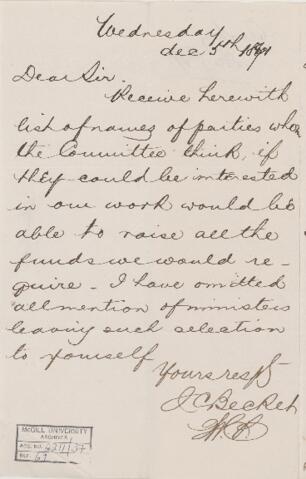 Wednesday
dec 5th
Dear Sir.
Receive herewith
list of names of parties whom
the Committee think, if
they could be interested
in our work would be
able to raise all the
funds we would re-
quire - I have omitted
all mention of ministers
leaving such selection
to yourself
Yours respy
J C Becket
McGILL UNIVERSITY
ARCHIVES
ACC. NO.
REF.